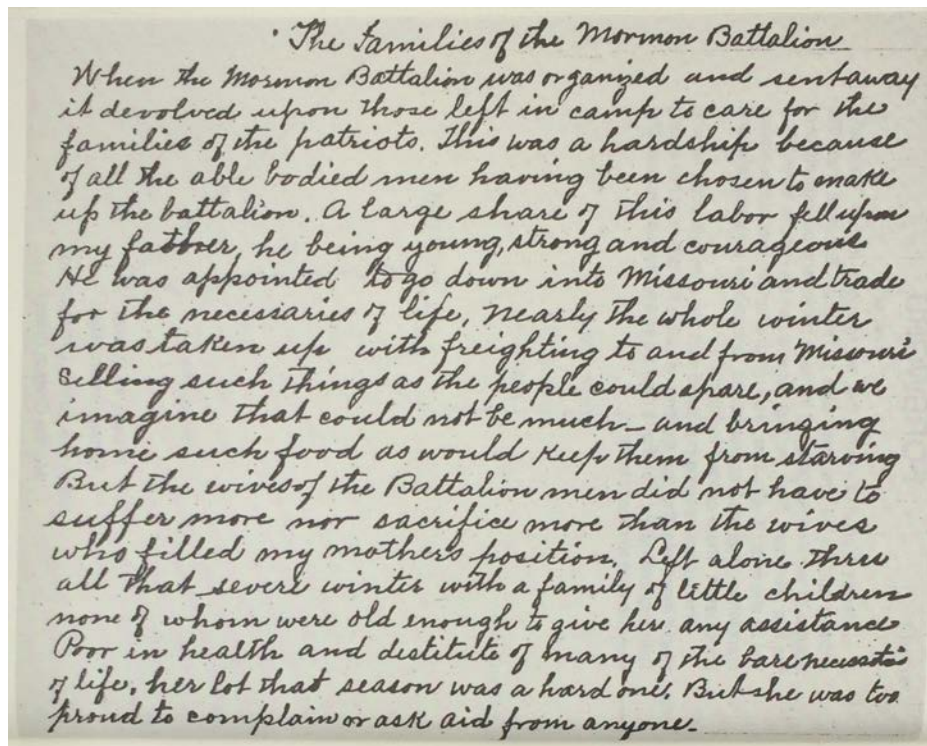 The Families of the Mormon Battalion
When the Mormon Battalion was organized and sent away
it devolved upon those left in camp to care for the
families of the patriots. This was a hardship because
of all the able bodied men having been chosen to make
up the battalion. A large share of this labor fell upon
my father, he being young, strong and courageous
He was appointed to go down into Missouri and trade
for the necessaries of life, nearly the whole winter
was taken up with freighting to and from Missouri
Selling such things as the people could spare, and we
imagine that could not be much - and bringing
home such food as would keep them from starving
But the wives of the Battalion men did not have to
suffer more nor sacrifice more than the wives
who filled my mothers position. Left alone thru
all that severe winter with a family of little children
none of whom were old enough to give her any assistance
Poor in health and destitute of many of the bare necessities
of life, her lot that season was a hard one. But she was too
proud to complain or ask aid from anyone.